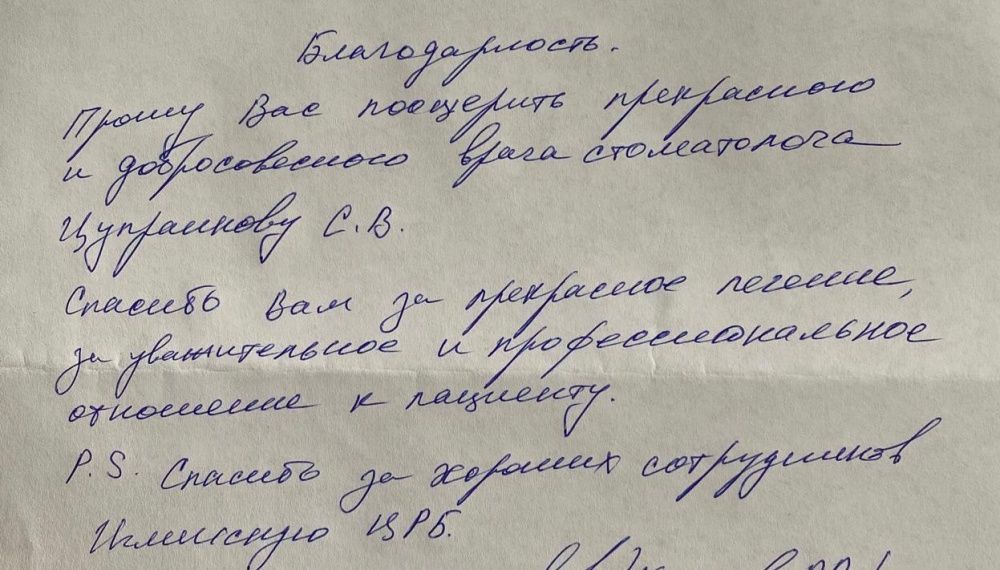 Благодарность.
Прошу Вас поощерить прекрасного
и добросовесного врача стоматолога
Цупрликову С.В.
Спасибо Вам за прекрасное лечение,
за уважительное и профессиональное
отношение к пациенту.
P.S. Спасибо за хороших сотрудников
ЦРБ.